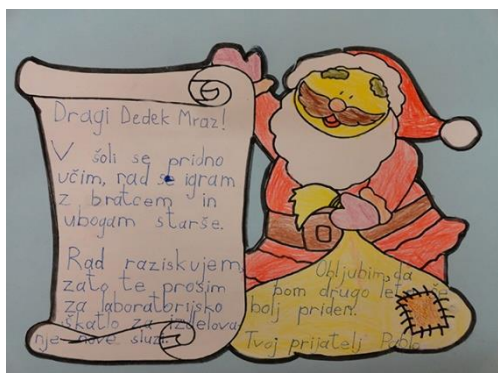 Dragi Dedek Mraz!
V šoli se pridno
učim, rad se igram
z bratcem in
ubogam starše.
Rad raziskujem,
zato te prosim
za laboratorijsko
škatlo za izdelova
nje nove sluzi.
Obljubim, da
bom drugo leto še
bolj priden.
Tvoj prijatelj Pablo